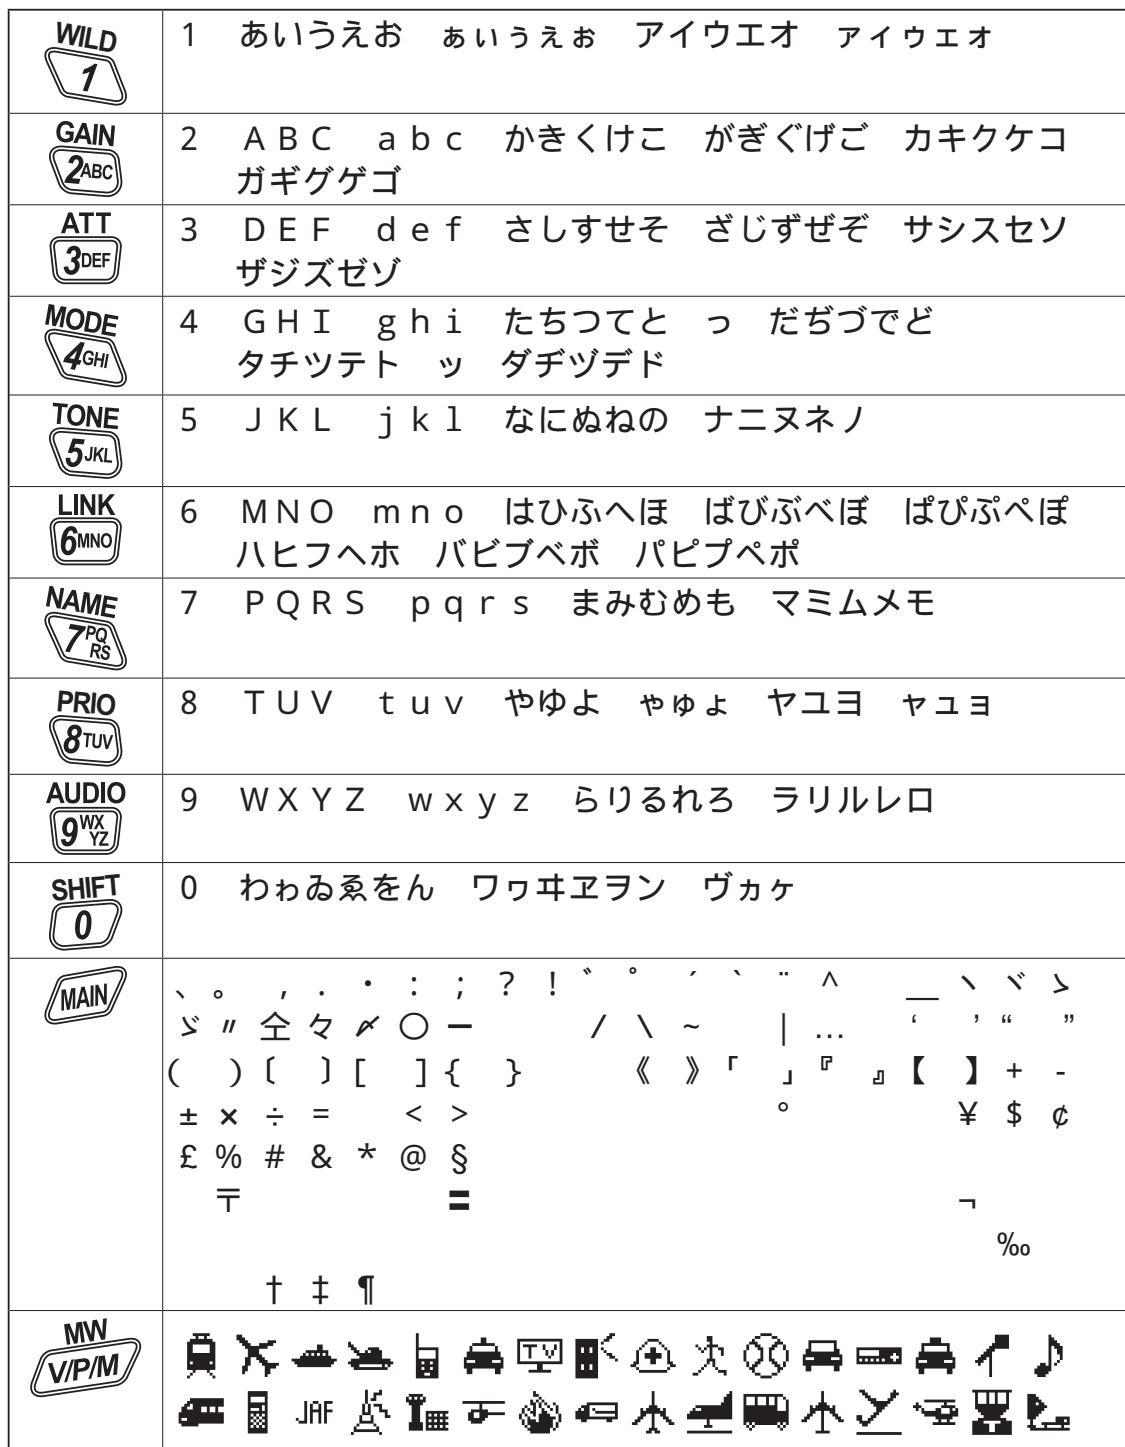 WILD
1
1 あいうえお ぁぃぅぇぉ アイウエオ ァィゥェォ
GAIN
2ABC
2 ＡＢＣ ａｂｃ かきくけこ がぎぐげご カキクケコ
ガギグゲゴ
ATT
3DEF
3 ＤＥＦ ｄｅｆ さしすせそ ざじずぜぞ サシスセソ
ザジズゼゾ
MODE
4GHI
4 ＧＨＩ ｇｈｉ たちつてと っ だぢづでど
タチツテト ッ ダヂヅデド
TONE
5JKL
5 ＪＫＬ ｊｋｌ なにぬねの ナニヌネノ
LINK
6MNO
6 ＭＮＯ ｍｎｏ はひふへほ ばびぶべぼ ぱぴぷぺぽ
ハヒフヘホ バビブベボ パピプペポ
NAME
7PQRS
7 ＰＱＲＳ ｐｑｒｓ まみむめも マミムメモ
PRIO
8TUV
8 ＴＵＶ ｔｕｖ やゆよ ゃゅょ ヤユヨ ャュョ
AUDIO
9WXYZ
9 ＷＸＹＺ ｗｘｙｚ らりるれろ ラリルレロ
SHIFT
0
0 わゎゐゑをん ワヮヰヱヲン ヴヵヶ
MAIN
、 。 , . ・ : ; ? ! ゛ ゜ ´ ｀ ¨ ^ ＿ ヽ ヾ ゝ
ゞ 〃 仝 々 〆 〇 ー / \ ~ | … ‘ ’ “ ”
( ) 〔 〕 [ ] { } 《 》 「 」 『 』 【 】 + -
± × ÷ = < > ° ¥ $ ¢
£ % # & * @ §
〒 〓 ¬
‰
† ‡ ¶
MW
V/P/M
TV
JAF